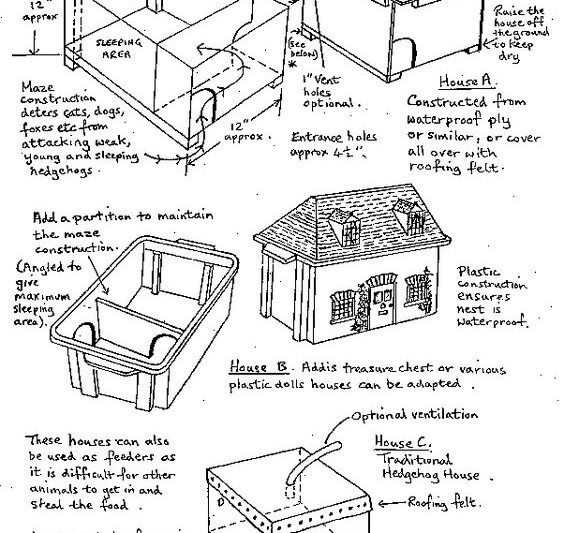 12"
approx
SLEEPING
AREA
(see
below)
*
Raise the
house off
the ground
to keep
dry
Maze
construction
deters cats, dogs,
foxes etc from
attacking weak,
young and sleeping
hedgehogs.
12"
approx.
1" Vent
holes
optional.
Entrance holes
approx 4½".
House A.
Constructed from
waterproof ply
or similar, or cover
all over with
roofing felt.
Add a partition to maintain
the maze
construction.
(Angled to
give
maximum
sleeping
area).
Plastic
construction
ensures
nest is
waterproof.
House B. Addis treasure chest or various
plastic dolls houses can be adapted.
Optional ventilation
These houses can also
be used as feeders as
it is difficult for other
animals to get in and
steal the food.
House C.
Traditional
Hedgehog House.
Roofing felt.